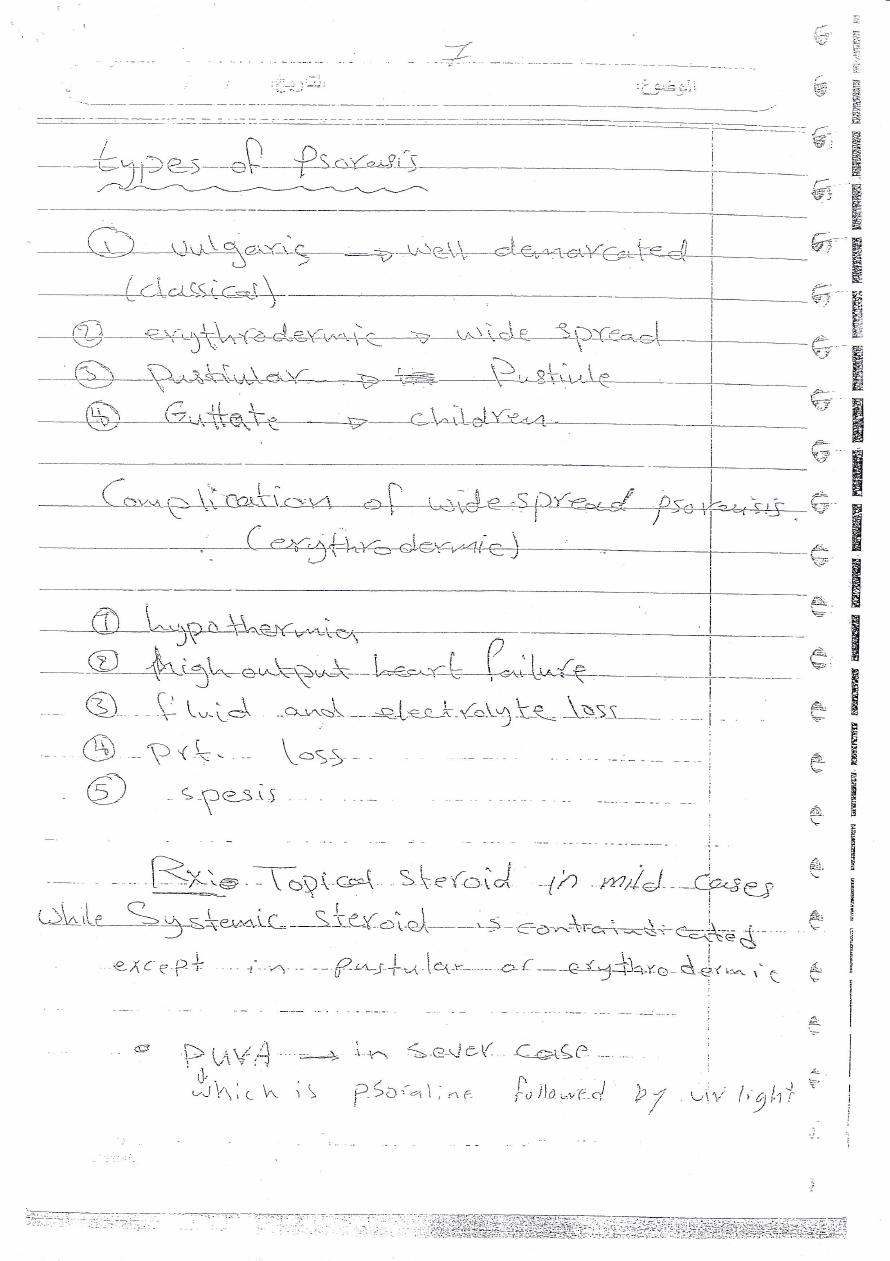 7
الموضوع: التاريخ: / /
types of Psorausis
① vulgaris → well demarcated
(classical)
② erythrodermic → wide spread
③ Pustiular → Pustiule
④ Guttate → children
Complication of wide spread psorausis.
(erythrodermic)
① hypothermia
② high output heart failure
③ fluid and electrolyte loss
④ Prt. loss
⑤ spesis
Rx Topical steroid in mild cases
while Systemic steroid is contraindicated
except in pustular or erythrodermic
PUVA → in sever case
which is psoraline followed by uv light